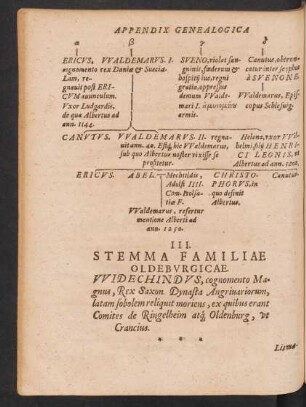 APPENDIX GENEALOGICA
α β γ δ
ERICUS, cognomento Lam. regnavit post ERICUM avunculum. Vxor Ludgerdis, de qua Albertus ad ann. 1144.
VVALDEMARVS. I. rex Daniæ & Sueciæ
SVENO, violat sanguinis, fœderum & hospitij ius, regni gratia, oppressus demum VValdemari I.
Canutus, obtruncatur à SVENONE
VValdemarus, Episcopus Schlesvg.
CANVTVS. VVALDEMARVS II. regnavit ann. 40. Estq; hic VValdemarus, sub quo Albertus noster vixisse se profitetur.
Helena, vxor VVilhelmi, filij HENRICI LEONIS, vt Albertus ad ann. 1202.
ERICVS. ABEL. Mechtildis, Adolfi IIII. Com. Holsatiæ F.
CHRISTOPHORVS, in quo desinit Albertus.
Canutus
VValdemarus, refertur mentione Alberti ad ann. 1250.
III.
STEMMA FAMILIAE
OLDEBVRGICAE.
VVIDECHINDVS, cognomento Magnus,
Rex Saxon. Dynasta Angrivariorum,
latam sobolem reliquit moriens, ex quibus erant
Comites de Ringelheim atq; Oldenburg, vt
Crancius.
* * *